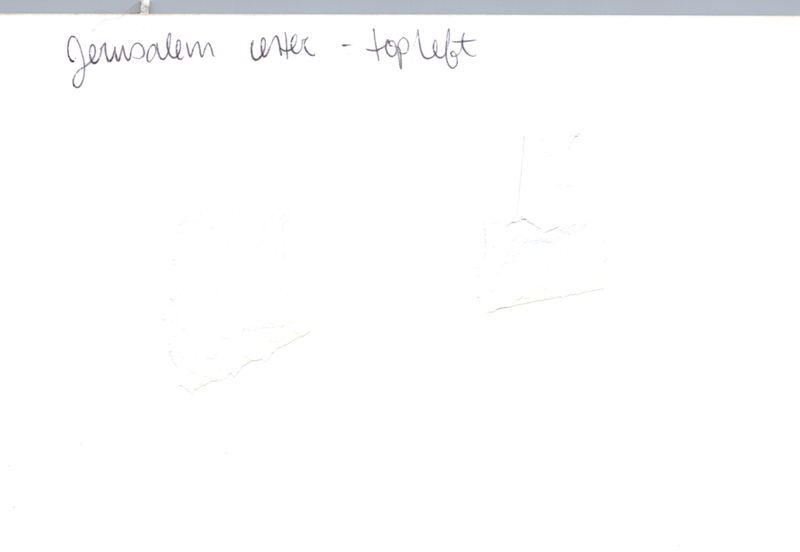 Jerusalem center - top left